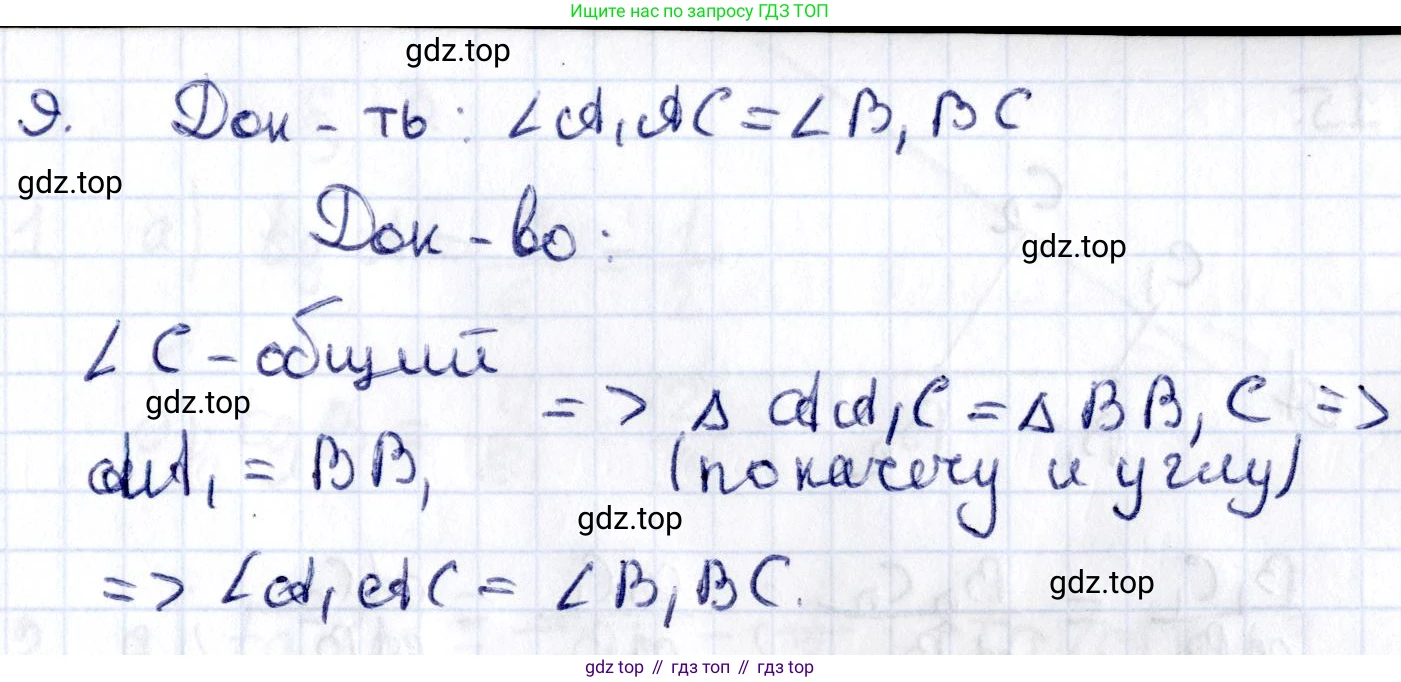 Ищите нас по запросу ГДЗ ТОП
gdz.top
9. Док-ть: ∠A₁AC = ∠B₁BC
gdz.top
Док-во:
gdz.top
∠C - общий
gdz.top
=> Δ AA₁C = Δ BB₁C =>
AA₁ = BB₁ (по катету и углу)
gdz.top
=> ∠A₁AC = ∠B₁BC.
gdz.top
gdz top // гдз топ // gdz top